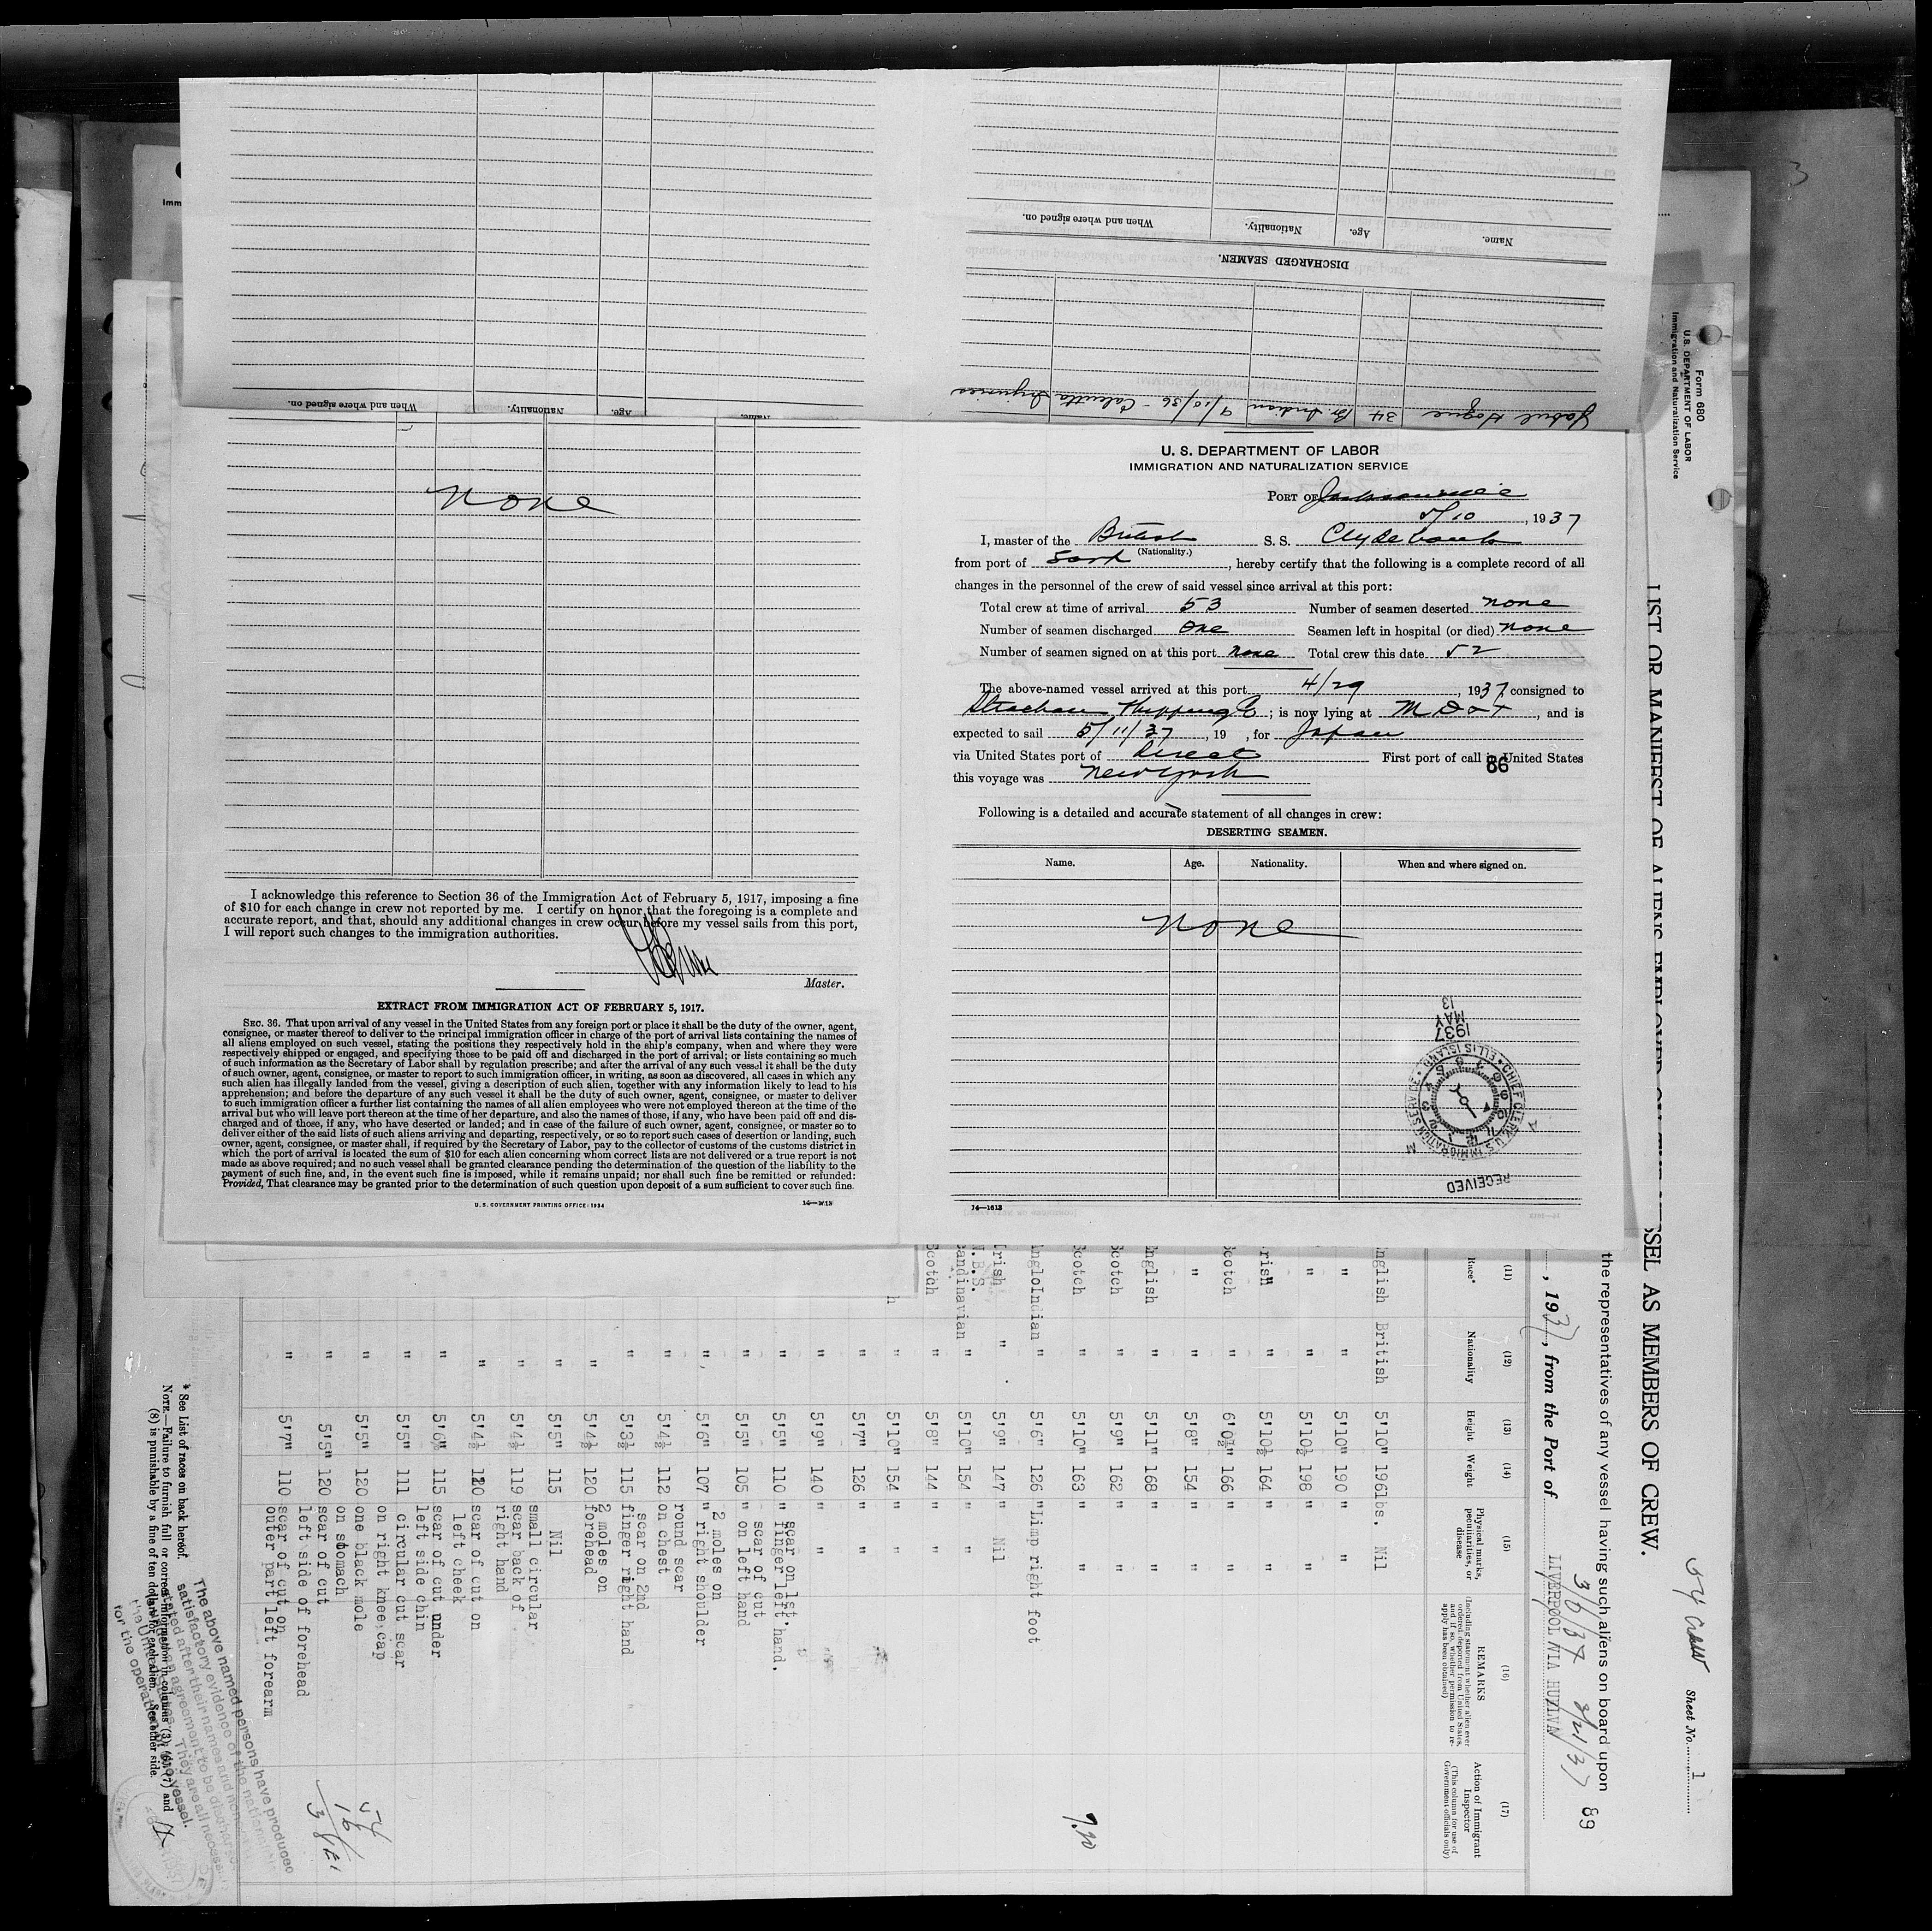 Name. Age. Nationality. When and where signed on.
DISCHARGED SEAMEN.
34 Br Indian 9/10/36 - Calcutta
Name. Age. Nationality. When and where signed on.
none
I acknowledge this reference to Section 36 of the Immigration Act of February 5, 1917, imposing a fine
of $10 for each change in crew not reported by me. I certify on honor that the foregoing is a complete and
accurate report, and that, should any additional changes in crew occur before my vessel sails from this port,
I will report such changes to the immigration authorities.
Master.
EXTRACT FROM IMMIGRATION ACT OF FEBRUARY 5, 1917.
SEC. 36. That upon arrival of any vessel in the United States from any foreign port or place it shall be the duty of the owner, agent,
consignee, or master thereof to deliver to the principal immigration officer in charge of the port of arrival lists containing the names of
all aliens employed on such vessel, stating the positions they respectively hold in the ship's company, when and where they were
respectively shipped or engaged, and specifying those to be paid off and discharged in the port of arrival; or lists containing so much
of such information as the Secretary of Labor shall by regulation prescribe; and after the arrival of any such vessel it shall be the duty
of such owner, agent, consignee, or master to report to such immigration officer, in writing, as soon as discovered, all cases in which any
such alien has illegally landed from the vessel, giving a description of such alien, together with any information likely to lead to his
apprehension; and before the departure of any such vessel it shall be the duty of such owner, agent, consignee, or master to deliver
to such immigration officer a further list containing the names of all alien employees who were not employed thereon at the time of the
arrival but who will leave port thereon at the time of her departure, and also the names of those, if any, who have been paid off and dis-
charged and of those, if any, who have deserted or landed; and in case of the failure of such owner, agent, consignee, or master so to
deliver either of the said lists of such aliens arriving and departing, respectively, or so to report such cases of desertion or landing, such
owner, agent, consignee, or master shall, if required by the Secretary of Labor, pay to the collector of customs of the customs district in
which the port of arrival is located the sum of $10 for each alien concerning whom correct lists are not delivered or a true report is not
made as above required; and no such vessel shall be granted clearance pending the determination of the question of the liability to the
payment of such fine, and, in the event such fine is imposed, while it remains unpaid; nor shall such fine be remitted or refunded:
Provided, That clearance may be granted prior to the determination of such question upon deposit of a sum sufficient to cover such fine.
U. S. GOVERNMENT PRINTING OFFICE: 1934
14—1613
U. S. DEPARTMENT OF LABOR
IMMIGRATION AND NATURALIZATION SERVICE
PORT OF Jacksonville
5/10, 1937
I, master of the British S. S. Clydebank
(Nationality.)
from port of, hereby certify that the following is a complete record of all
changes in the personnel of the crew of said vessel since arrival at this port:
Total crew at time of arrival 53 Number of seamen deserted none
Number of seamen discharged One Seamen left in hospital (or died) none
Number of seamen signed on at this port none Total crew this date 52
The above-named vessel arrived at this port 4/29, 1937, consigned to
Strachan Shipping Co; is now lying at M D & T, and is
expected to sail 5/11/37, 19 , for Japan
via United States port of Direct First port of call in United States
86
this voyage was New York
Following is a detailed and accurate statement of all changes in crew:
DESERTING SEAMEN.
Name. Age. Nationality. When and where signed on.
none
1937
MAY
13
CHIEF CLERK U.S. IMMIGRATION SERVICE ELLIS ISLAND
RECEIVED
14—1613
Form 680
U.S. DEPARTMENT OF LABOR
Immigration and Naturalization Service
LIST OR MANIFEST OF ALIENS EMPLOYED ON THE VESSEL AS MEMBERS OF CREW.
54 Crew
Sheet No. 1
the representatives of any vessel having such aliens on board upon
89
3/6/37 3/21/37
, 1937, from the Port of LIVERPOOL VIA
(11) (12) (13) (14) (15) (16) (17)
Race* Nationality Height Weight Physical marks, peculiarities, or disease
REMARKS
(Including statement whether alien ever ordered deported from United States, and if so, whether permission to re-apply has been obtained)
Action of Immigrant Inspector
(This column for use of Government officials only)
English British 5'10" 196lbs. Nil
" " 5'10" 190 " "
" " 5'10½ 198 " "
Irish " 5'10½ 164 " "
Scotch " 6'0½" 166 " "
" " 5'8" 154 " "
English " 5'11" 168 " "
Scotch " 5'9" 162 " "
Scotch " 5'10" 163 " " 7.90
AngloIndian " 5'6" 126 " Limp right foot
Irish " 5'9" 147 " Nil
Scandinavian " 5'10" 154 " "
Scotch " 5'8" 144 " "
" 5'10" 154 " "
" 5'7" 126 " "
" 5'9" 140 " "
" 5'5" 110 " scar on 1st. finger left hand.
" 5'5" 105 " scar of cut on left hand
" 5'6" 107 " 2 moles on right shoulder
" 5'4½ 112 round scar on chest
" 5'3½ 115 scar on 2nd finger right hand
" 5'4½ 120 2 moles on forehead
" 5'5" 115 Nil
" 5'4½ 119 small circular scar back of right hand
" 5'4½ 120 scar of cut on left cheek
" 5'6½ 115 scar of cut under left side chin
" 5'5" 111 circular cut scar on right knee cap
" 5'5" 120 one black mole on stomach
" 5'5" 120 scar of cut left side of forehead
" 5'7" 110 scar of cut on outer part left forearm
54
16
* See List of races on back hereof.
NOTE.—Failure to furnish full or correct information in columns (3), (4), (6), (7) and
(8) is punishable by a fine of ten dollars for each alien. See other side.
The above named persons have produced
satisfactory evidence of the
stated after their names and
agreement to be discharged
They are all necessary
for the operation vessel.